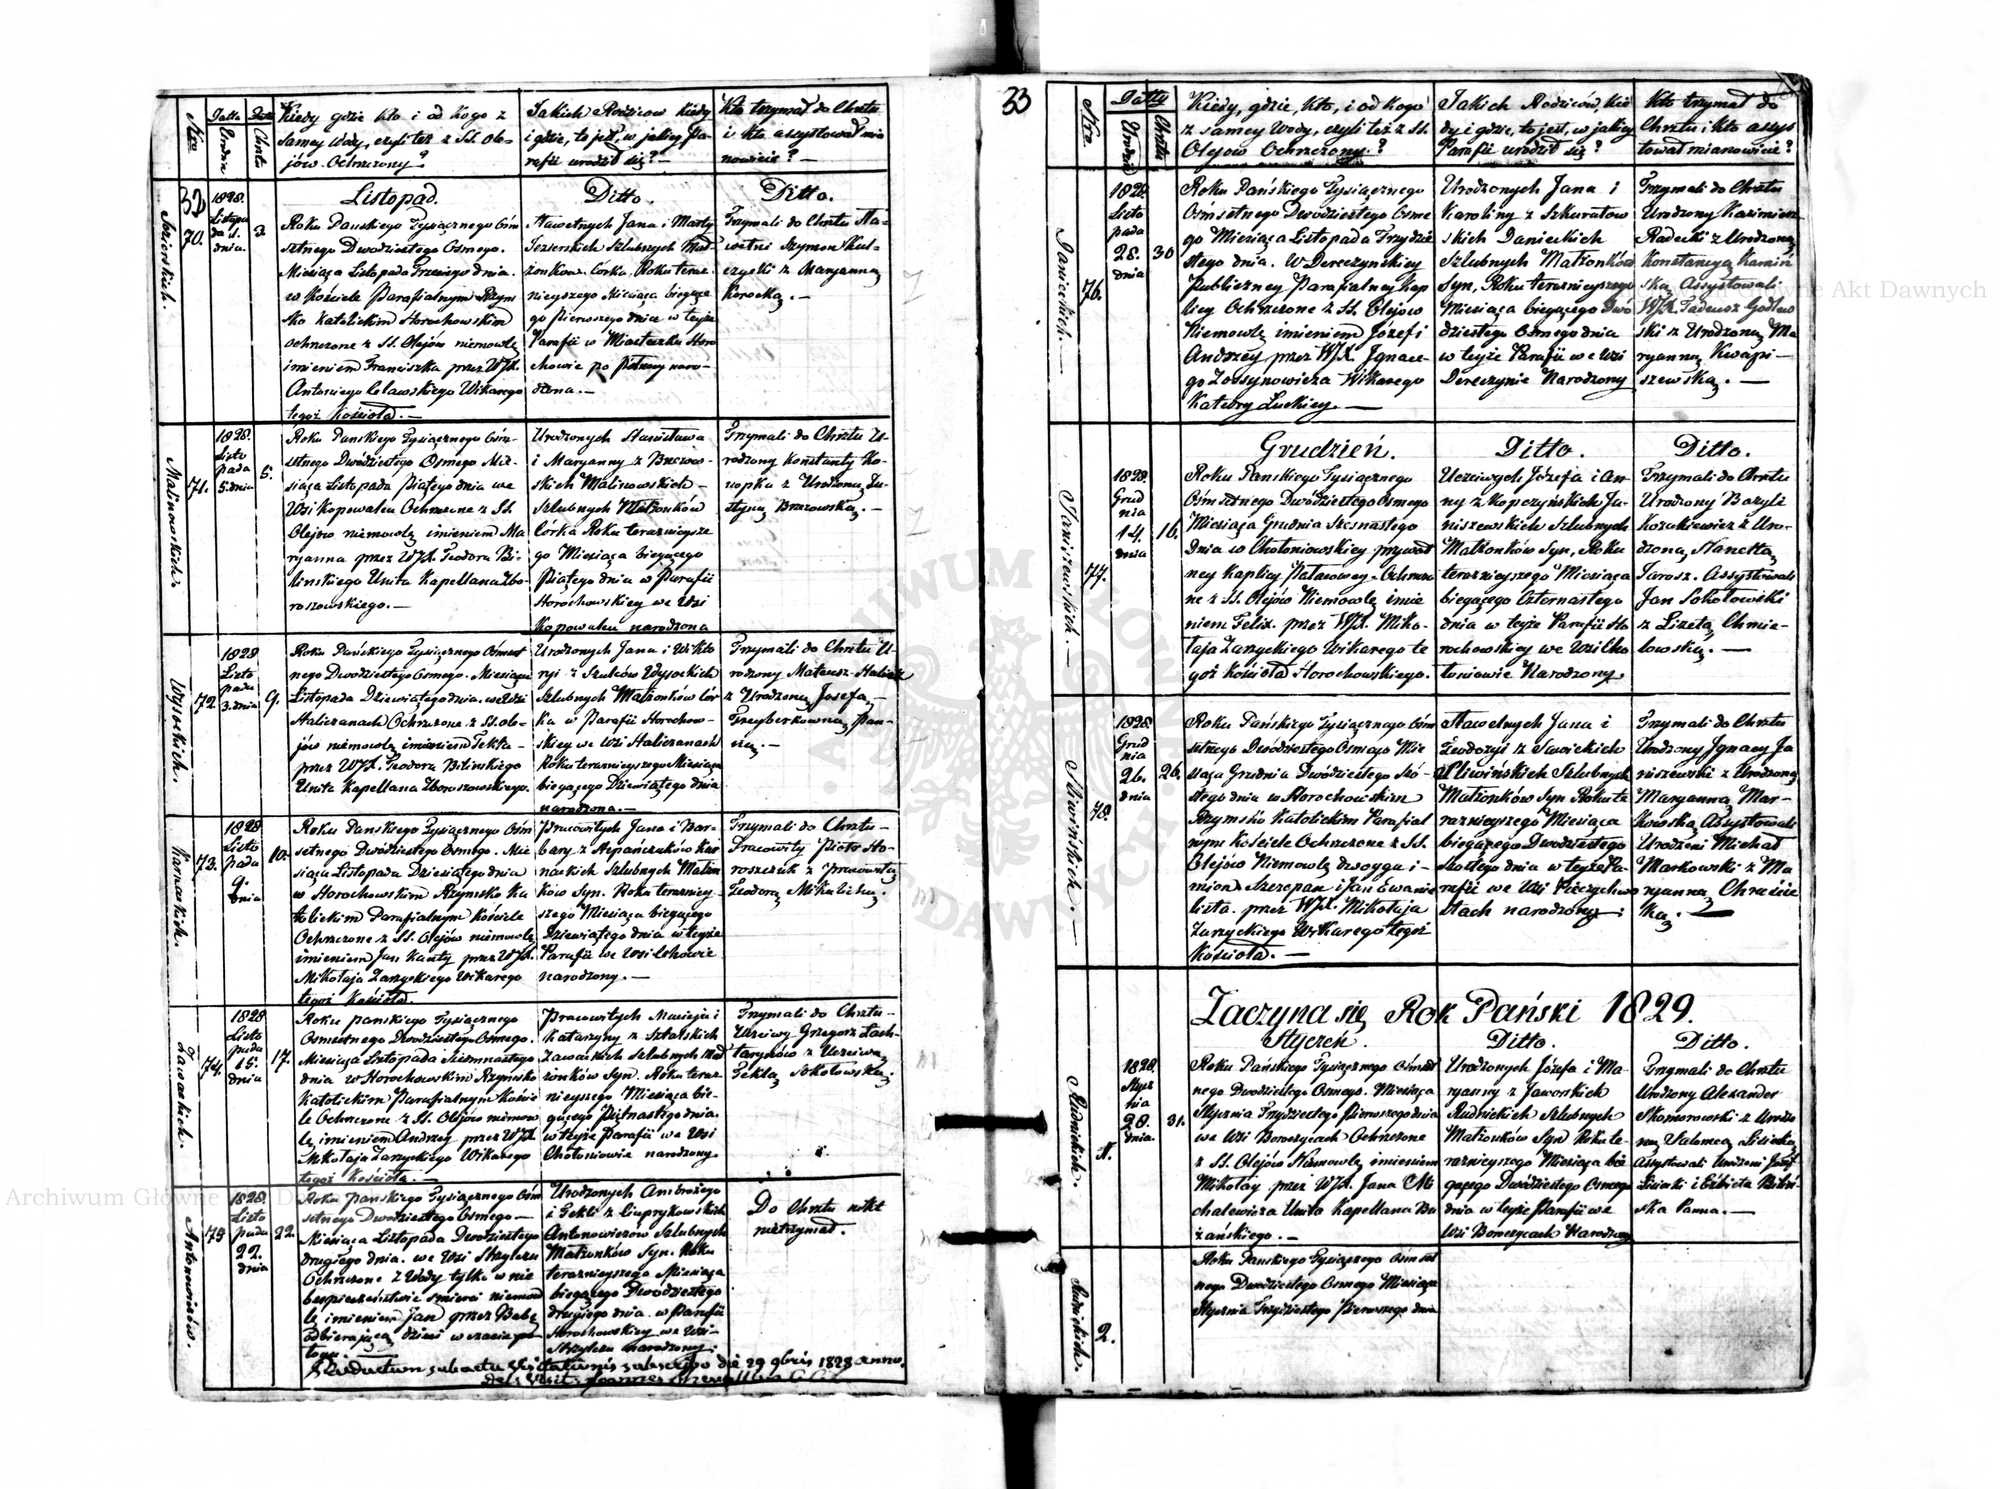 Nro
Datta
Urodze
Datta
Chrztu
Kiedy gdzie kto i od kogo z
samey wody, czyli też z SS. Ole-
jów Ochrzczony?
Jakich Rodziców kiedy
i gdzie, to jest, w jakiey Pa-
rafii urodził się? —
Kto trzymał do Chrztu
i kto assystował mia
nowicie? —
32
Listopad.
Ditto.
Ditto.
Jezierskich.
70.
1828.
Listopa
da 1.
dnia.
3.
Roku Panskiego Tysiącznego Óśm
setnego Dwudziestego Osmego.
Miesiąca Listopada Trzeciego dnia.
w Kościele Parafialnym Rzym
sko Katolickim Horochowskim
ochrzczone z SS. Olejów niemowlę
imieniem Franciszka przez WJX.
Antoniego Wikarego
tegoż Kościoła. —
Sławetnych Jana i Marty
Jezierskich Szlubnych Mał-
żonków Córka, Roku teraz-
nieyszego Miesiąca bieżące
go pierwszego dnia w teyże
Parafii w Miasteczku Horo
chowie po naro-
dzona. —
Trzymali do Chrztu Sła-
wetni Szymon Kul-
czycki z Maryanną
Korocką. —
Malinowskich.
71.
1828.
Listo
pada
5. dnia
5.
Roku Panskiego Tysiącznego Óśm-
setnego Dwódziestego Osmego Mie-
siąca Listopada Piątego dnia we
Wsi Kopowaleu Ochrzczone z SS.
Olejów niemowlę imieniem Ma
ryanna przez WJX. Teodora Bi-
linskiego Unita Kapellana Zbo-
roszowskiego. —
Urodzonych Stanisława
i Maryanny z Brzozow-
skich Malinowskich —
Szlubnych Małżonków
Córka Roku teraznieysze
go Miesiąca bieżącego
Piątego dnia w Parafii
Horochowskiey we Wsi
Kopowaleu narodzona
Trzymali do Chrztu U-
rodzony Konstanty Ko-
nopka z Urodzoną Ju-
styną Brzozowską. —
Wysockich.
72
1828
Listo
pada
3. dnia
9.
Roku Pańskiego Tysiącznego Ośmset
nego Dwodziestego Osmego. Miesiąca
Listopada Dziewiątego dnia. we Wsi
Haliczanach Ochrzczone z SS. Ole-
jów niemowlę imieniem Tekla —
przez WJX. Teodora Bilińskiego
Unita Kapellana Zboroszowskiego.
Urodzonych Jana i Wikto
ryi z Szuków Wysockich
Szlubnych Małżonków Cór
ka w Parafii Horochow-
skiey we Wsi Haliczanach
Roku teraznieyszego Miesiąca
bieżącego Dziewiątego dnia
narodzona. —
Trzymali do Chrztu U-
rodzony Mateusz
z Urodzoną Josefą —
Freyberkówną Pan-
ną. —
Karnackich.
73.
1828
Listo
pada
9.
dnia
10.
Roku Panskiego Tysiącznego Ośm
setnego Dwódziestego Osmego. Mie
siąca Listopada Dziesiątego dnia
w Horochowskim Rzymsko Ka
tolickim Parafialnym Kościele
Ochrzczone z SS. Olejów niemowlę
imieniem Jan Kanty przez WJX.
Mikołaja Zarzyckiego Wikarego
tegoż Kościoła
Pracowitych Jana i Bar-
bary z Stepańczuków Kar
nackich Szlubnych Małżon
ków Syn. Roku terazniey-
szego Miesiąca bieżącego
Dziewiątego dnia w teyże
Parafii we Wsi
narodzony. —
Trzymali do Chrztu —
Pracowity Piotr Ho-
roszczuk z Pracowitą
Teodorą
Zawackich.
74.
1828
Listo
pada
15.
dnia
17.
Roku panskiego Tysiącznego
Osmsetnego Dwodziestego Osmego.
Miesiąca Listopada Siedmnastego
dnia w Horochowskim Rzymsko
Katolickim Parafialnym Koście
le Ochrzczone z SS. Olejów niemow
lę imieniem Andrzey przez WJX.
Mikołaja Zarzyckiego Wikarego
tegoż Kościoła. —
Pracowitych Macieja i
Katarzyny z
Zawackich Szlubnych Mał
żonków Syn. Roku teraz
nieyszego Miesiąca bie-
żącego Piętnastego dnia.
w teyże Parafii we Wsi
Chołoniowie narodzony.
Trzymali do Chrztu —
Uczciwy Grzegorz
z Uczciwą
Teklą Sokołowską.
Antonowiczów.
75
1828.
Listo
pada
22.
dnia
22.
Roku panskiego Tysiącznego Óśm
setnego Dwodziestego Osmego —
Miesiąca Listopada Dwodziestego
drugiego dnia. we Wsi
Ochrzczone z Wody tylko w nie
bezpieczeństwie śmierci niemow
lę imieniem Jan przez Babę
odbierającą dzieci w czasie po-
łogu. —
Urodzonych Ambrożego
i Tekli z Cuprykowskich
Antonowiczow Szlubnych
Małżonków Syn. Roku
teraznieyszego Miesiąca
bieżącego Dwódziestego
drugiego dnia w Parafii
Horochowskiey we Wsi —
narodzony.
Do Chrztu nikt
nietrzymał.
Productum sub actu Visitationis subscripsi die 29 9bris 1828 anno.
33
Nro
Datty
Urodze
Chrztu
Kiedy, gdzie, kto, i od kogo
z samey Wody, czyli też z SS.
Olejow Ochrzczony?
Jakich Rodziców, kie
dy i gdzie, to jest, w jakiey
Parafii urodził się?
Kto trzymał do
Chrztu i kto assys
tował mianowicie?
Danieckich. —
76.
1828.
Listo
pada
28.
dnia
30
Roku Pańskiego Tysiącznego
Ośmsetnego Dwódziestego Osme
go Miesiąca Listopada Trzydzie
stego dnia. W Dereczynskiey
Publiczney Parafialney Kap
licy Ochrzczone z SS. Olejów
Niemowlę imieniem Józef i
Andrzey przez WJX. Ignace-
go Zossynowicza Wikarego
Katedry Luckiey. —
Urodzonych Jana i
Karoliny z Szkuratow
skich Danieckich
Szlubnych Małżonków
Syn, Roku teraznieyszego
Miesiąca bieżącego Dwó
dziestego Osmego dnia
w teyże Parafii we Wsi
Dereczynie Narodzony
Trzymali do Chrztu
Urodzony Kazimierz
Radecki z Urodzoną
Konstancyą Kamiń
ską, Assystowali
WJX. Tadeusz Godlew
ski z Urodzoną Ma
ryanną Kwapi —
szewską. —
Grudzień.
Ditto.
Ditto.
Janiszewskich. —
77.
1828.
Grud
nia
14.
dnia
16.
Roku Panskiego Tysiącznego
Ośmsetnego Dwódziestego Osmego
Miesiąca Grudnia Szesnastego
Dnia w Chołoniowskiey prywat
ney Kaplicy Pałacowey Ochrzczo
ne z SS. Olejów Niemowlę imie
niem Felix. przez WJX. Miko-
łaja Zarzyckiego Wikarego te
goż Kościoła Horochowskiego.
Uczciwych Józefa i An-
ny z Kopczyńskich Ja-
niszewskich Szlubnych
Małżonków Syn, Roku
teraznieyszego Miesiąca
bieżącego Czternastego
dnia w teyże Parafii Ho
rochowskiey we Wsi Cho
łoniowie Narodzony.
Trzymali do Chrztu
Urodzony Bazyli
Kozakiewicz z Uro-
dzoną Stanettą
Jarosz. Assystowali
Jan Sokołowski
z Lizetą Chmie-
lowską. —
Sliwińskich. —
78.
1828
Grud
nia
26.
dnia
26.
Roku Pańskiego Tysiącznego Óśm
setnego Dwódziestego Osmego Mie
siąca Grudnia Dwódziestego Szó-
stego dnia w Horochowskim
Rzymsko Katolickim Parafial
nym Kościele Ochrzczone z SS.
Olejów Niemowlę dwoyga i-
mion Szczepan i Jan Ewanie
lista. przez WJX. Mikołaja
Zarzyckiego Wikarego tegoż
Kościoła. —
Sławetnych Jana i
Teodozyi z Sawickich
Sliwińskich Szlubnych
Małżonków Syn Roku te
raznieyszego Miesiąca
bieżącego Dwodziestego
Szóstego dnia w teyże Pa-
rafii we Wsi
narodzony.
Trzymali do Chrztu
Urodzony Ignacy Ja
niszewski z Urodzoną
Maryanną Mar-
kowską Assystowali
Urodzeni Michał
Markowski z Ma
ryanną
ką. —
Zaczyna się Rok Pański 1829.
Styczeń.
Ditto.
Ditto.
Rudnickich.
1.
1828.
Stycz
nia
28.
dnia.
31.
Roku Pańskiego Tysiącznego Óśmset
nego Dwodziestego Osmego. Miesiąca
Stycznia Trzydziestego Pierwszego dnia
we Wsi Boroczycach Ochrzczone
z SS. Olejów Niemowlę imieniem
Mikołay przez WJX. Jana Mi
chalewicza Unita Kapellana Bu
żańskiego. —
Urodzonych Józefa i Ma-
ryanny z Jaworskich
Rudnickich Szlubnych
Małżonków Syn Roku te-
raznieyszego Miesiąca bie
żącego Dwódziestego Osmego
dnia w teyże Parafii we
Wsi Boroczycach Narodzony
Trzymali do Chrztu
Urodzony Alexander
Skomorowski z Urodzo
ną Salomeą Lisiecką
Assystowali Urodzeni Józef
Lisiecki i Elżbieta Biliń
ska Panna. —
Rudnickich.
2.
Roku Panskiego Tysiącznego Ośmset
nego Dwodziestego Osmego Miesiąca
Stycznia Trzydziestego Pierwszego dnia
Archiwum Główne Akt Dawnych
ARCHIWUM GŁÓWNE AKT DAWNYCH